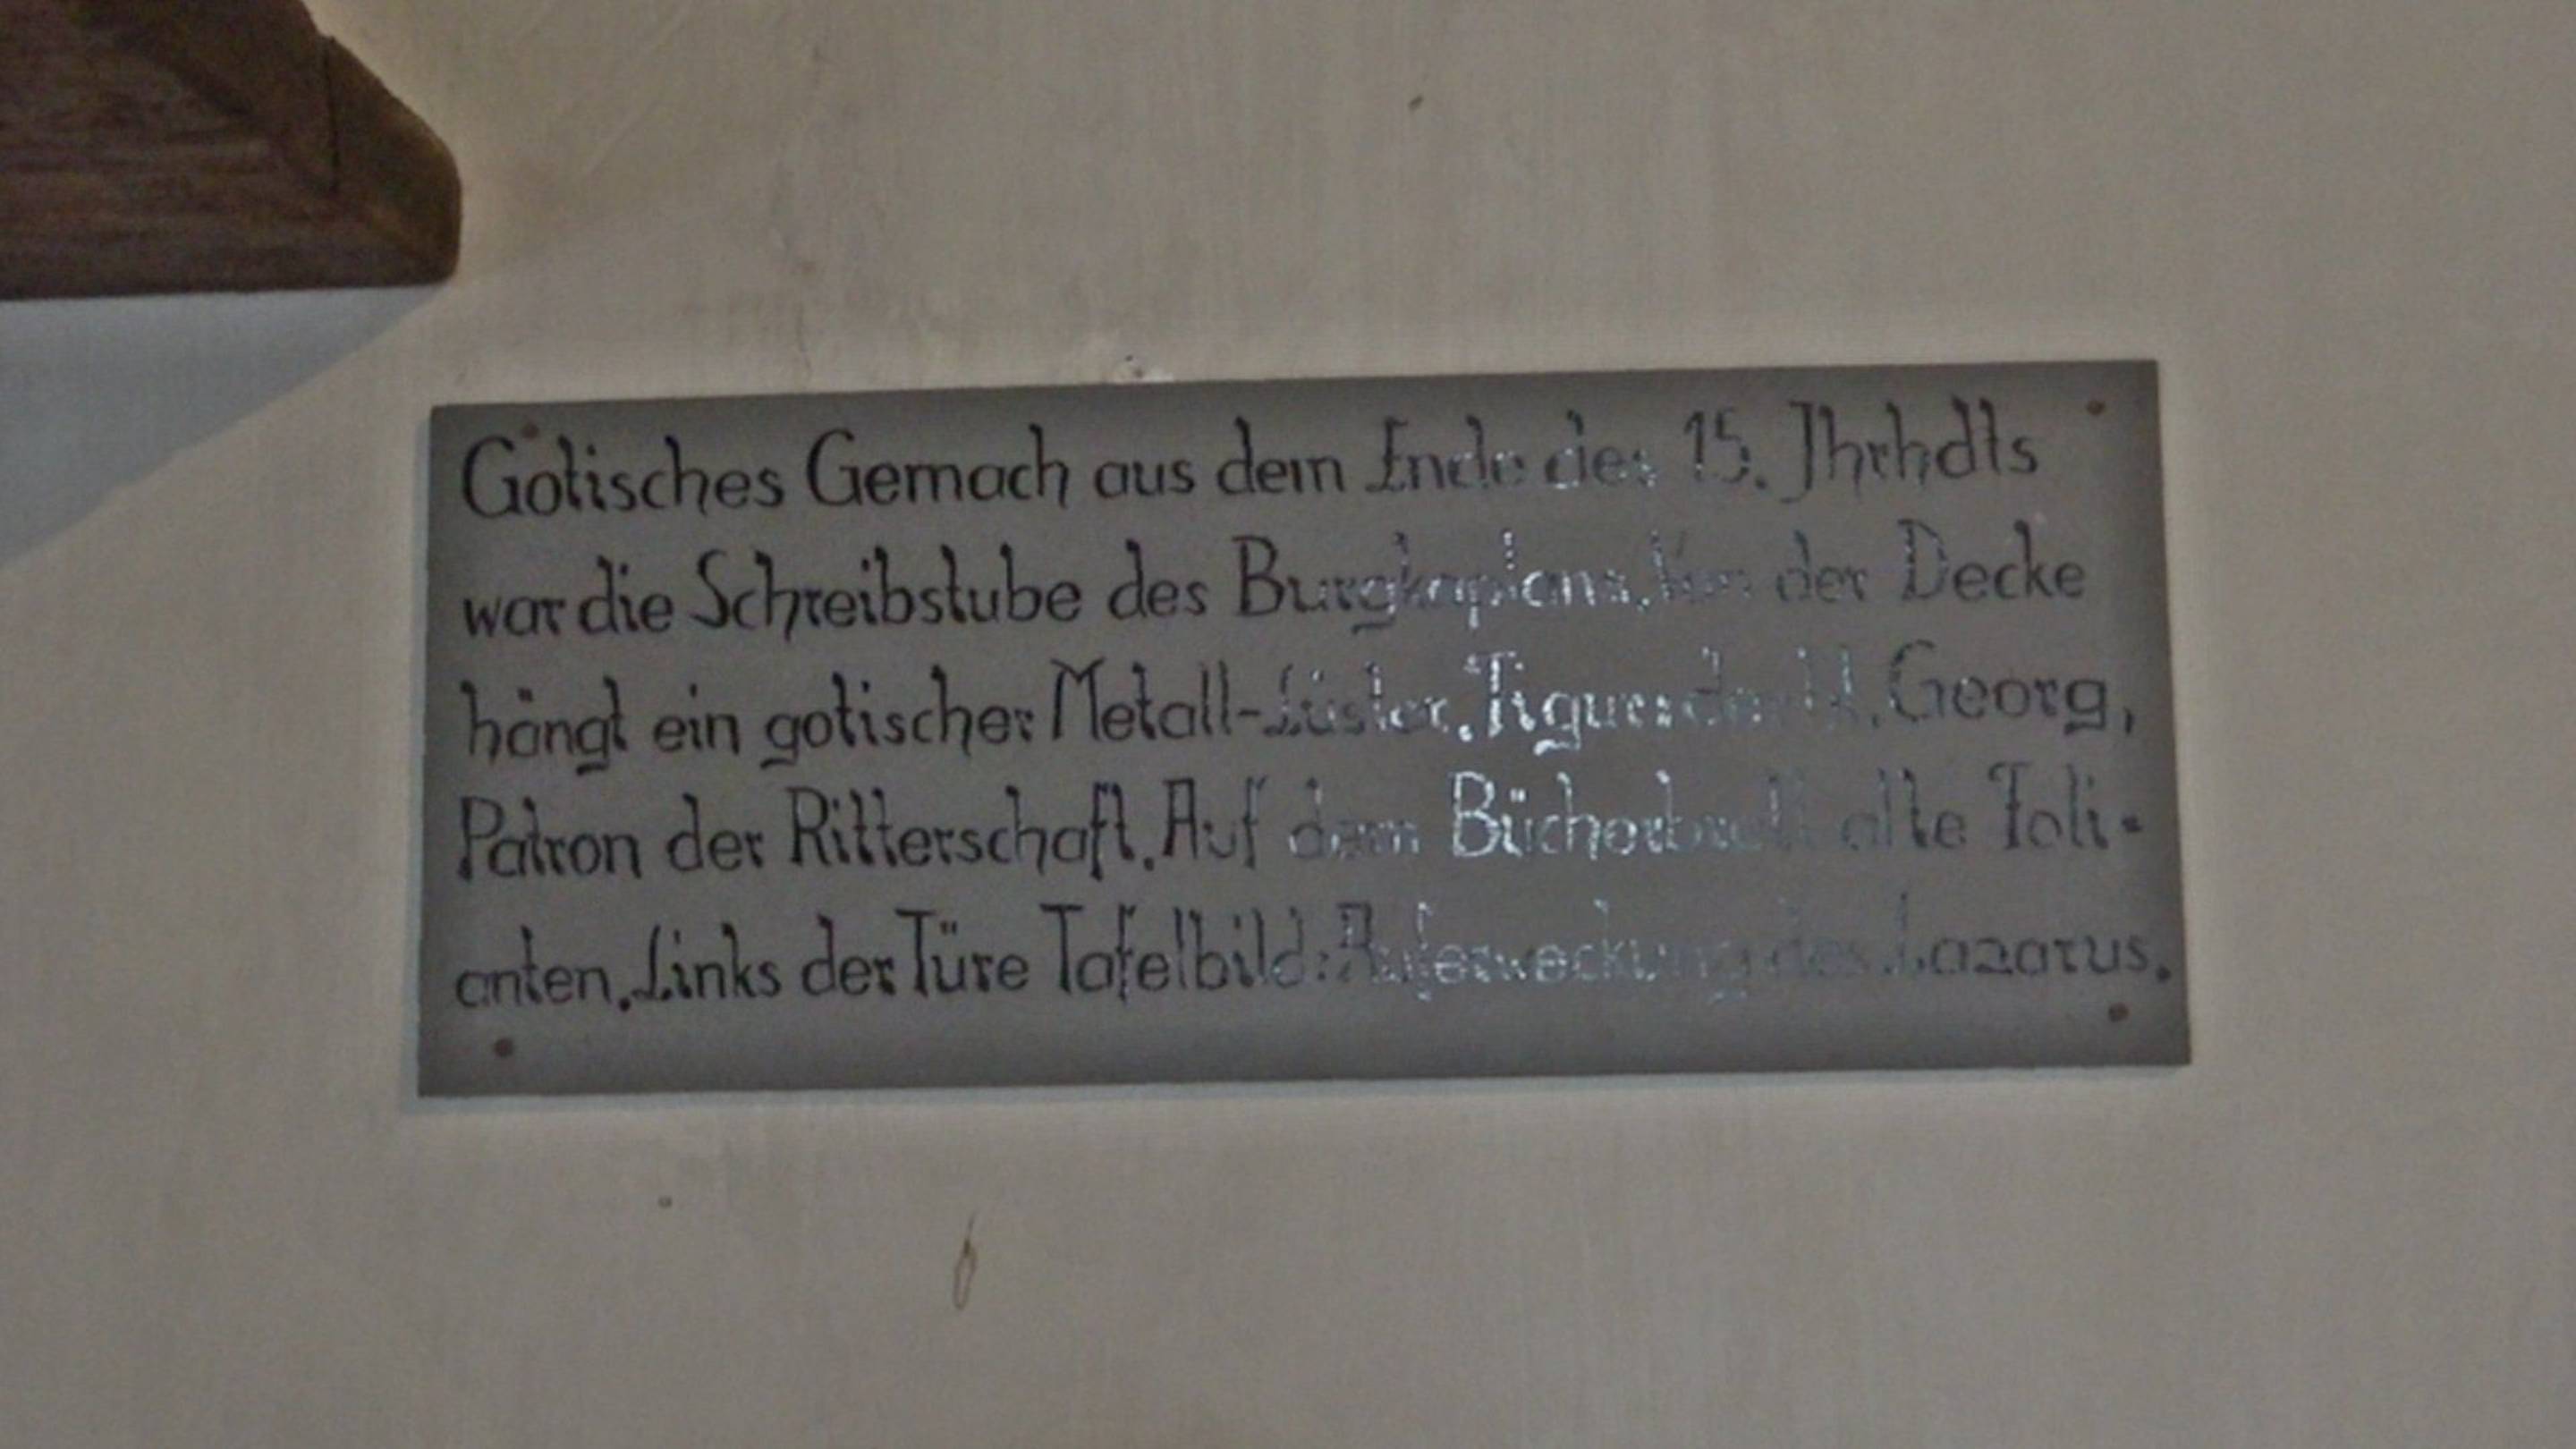 Gotisches Gemach aus dem Ende des 15. Jhrhdts
war die Schreibstube des Burgkaplans. Von der Decke
hängt ein gotischer Metall-Lüster. Figur: der hl. Georg,
Patron der Ritterschaft. Auf dem Bücherbrett alte Foli-
anten. Links der Türe Tafelbild: Auferweckung des Lazarus.